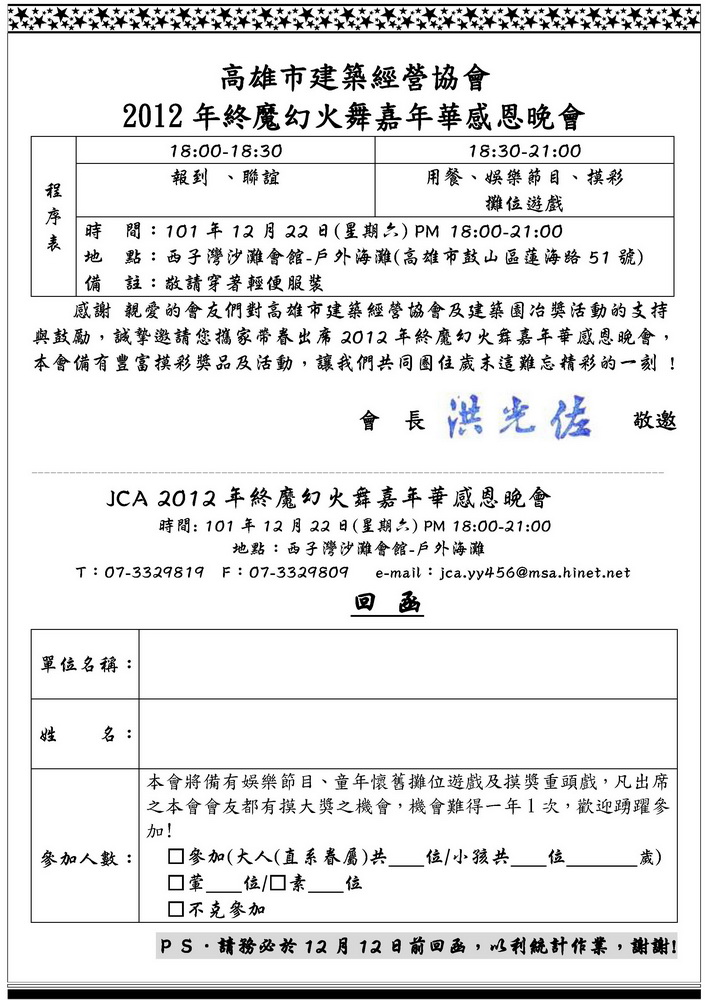 高雄市建築經營協會
2012 年終魔幻火舞嘉年華感恩晚會
程序表
18:00-18:30 18:30-21:00
報到 、聯誼 用餐、娛樂節目、摸彩
攤位遊戲
時 間：101 年 12 月 22 日(星期六) PM 18:00-21:00
地 點：西子灣沙灘會館-戶外海灘(高雄市鼓山區蓮海路 51 號)
備 註：敬請穿著輕便服裝
感謝 親愛的會友們對高雄市建築經營協會及建築園冶獎活動的支持
與鼓勵，誠摯邀請您攜家帶眷出席 2012 年終魔幻火舞嘉年華感恩晚會，
本會備有豐富摸彩獎品及活動，讓我們共同圈住歲末這難忘精彩的一刻 !
會 長 洪光佐 敬邀
JCA 2012 年終魔幻火舞嘉年華感恩晚會
時間: 101 年 12 月 22 日(星期六) PM 18:00-21:00
地點：西子灣沙灘會館-戶外海灘
T：07-3329819 F：07-3329809 e-mail：jca.yy456@msa.hinet.net
回 函
單位名稱：
姓 名：
參加人數：
本會將備有娛樂節目、童年懷舊攤位遊戲及摸獎重頭戲，凡出席
之本會會友都有摸大獎之機會，機會難得一年 1 次，歡迎踴躍參
加!
□參加(大人(直系眷屬)共___位/小孩共___位______歲)
□葷___位/□素___位
□不克參加
ＰＳ．請務必於 12 月 12 日前回函，以利統計作業，謝謝!